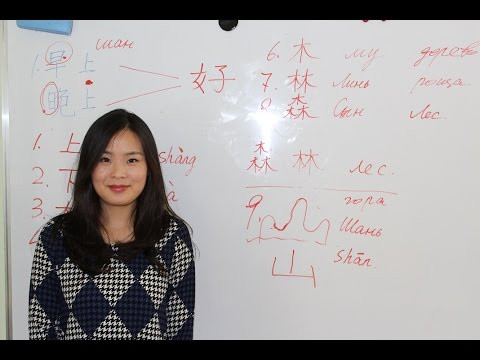 шан
1. 早上
晚上
好
1. 上 shàng
2. 下 à
3.
6. 木 му дерево
7. 林 линь роща
8. 森 Сын лес.
森林 лес.
9. гора
Шань
山 shān